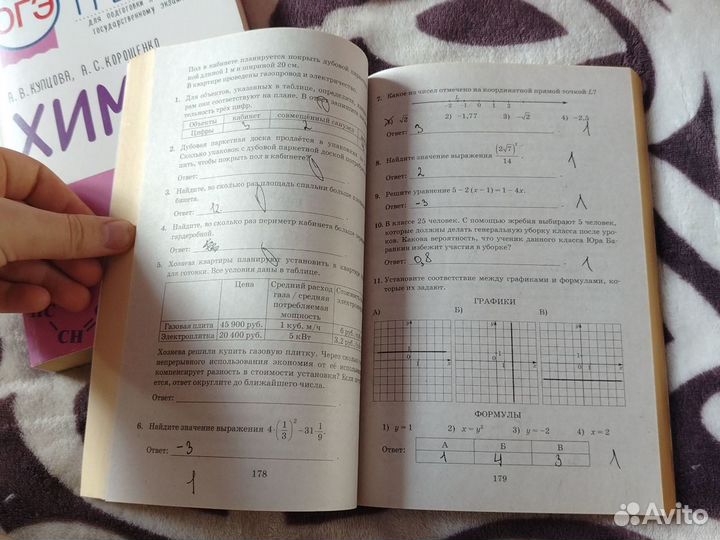 ОГЭ
для подготовки к
государственному экзам
А. В. КУПЦОВА, А. С. КОРОЩЕНКО
ХИМ
CH
Пол в кабинете планируется покрыть дубовой
ной длиной 1 м и шириной 20 см.
В квартире проведены газопровод и электричество.
1. Для объектов, указанных в таблице, определите,
рам они соответствуют на плане. В от запишите
тельность трёх цифр.
Объекты кабинет совмещённый санузел
Цифры 5 2
2. Дубовая паркетная доска продаётся в упаковках по
Сколько упаковок с дубовой паркетной доской потребо
пить, чтобы покрыть пол в кабинете?
Ответ:
3. Найдите, во сколько раз площадь спальни больше
бинета.
Ответ: 12
4. Найдите, во сколько раз периметр кабинета больше
гардеробной.
Ответ:
5. Хозяева квартиры планируют установить в квартире
для готовки. Все условия даны в таблице.
Цена Средний расход газа / средняя потребляемая мощность Стоимость
Газовая плита 45 900 руб. 1 куб. м/ч 6 руб.
Электроплитка 20 400 руб. 5 кВт 3,2 руб.
Хозяева решили купить газовую плитку. Через сколько
непрерывного использования экономия от её использован
компенсирует разность в стоимости установки? Если
ется, ответ округлите до ближайшего числа.
Ответ:
6. Найдите значение выражения 4·(1/3)² −31·1/9.
Ответ: −3
1
178
7. Какое из чисел отмечено на координатной прямой точкой L?
L
-2 -1 0 1 2
√2 2) −1,77 3) −√2 4) −2,5
Ответ: 3 1
8. Найдите значение выражения (2√7)²/14.
Ответ: 2 1
9. Решите уравнение 5 − 2(x − 1) = 1 − 4x.
Ответ: −3 1
10. В классе 25 человек. С помощью жребия выбирают 5 человек,
которые должны делать генеральную уборку класса после уро-
ков. Какова вероятность, что ученик данного класса Юра Ба-
ранкин избежит участия в уборке?
Ответ: 0,8 1
11. Установите соответствие между графиками и формулами, кото-
рые их задают.
ГРАФИКИ
А) Б) В)
ФОРМУЛЫ
1) y = 1 2) x = y² 3) y = −2 4) x = 2
Ответ: А Б В
1 4 3 1
179
Avito